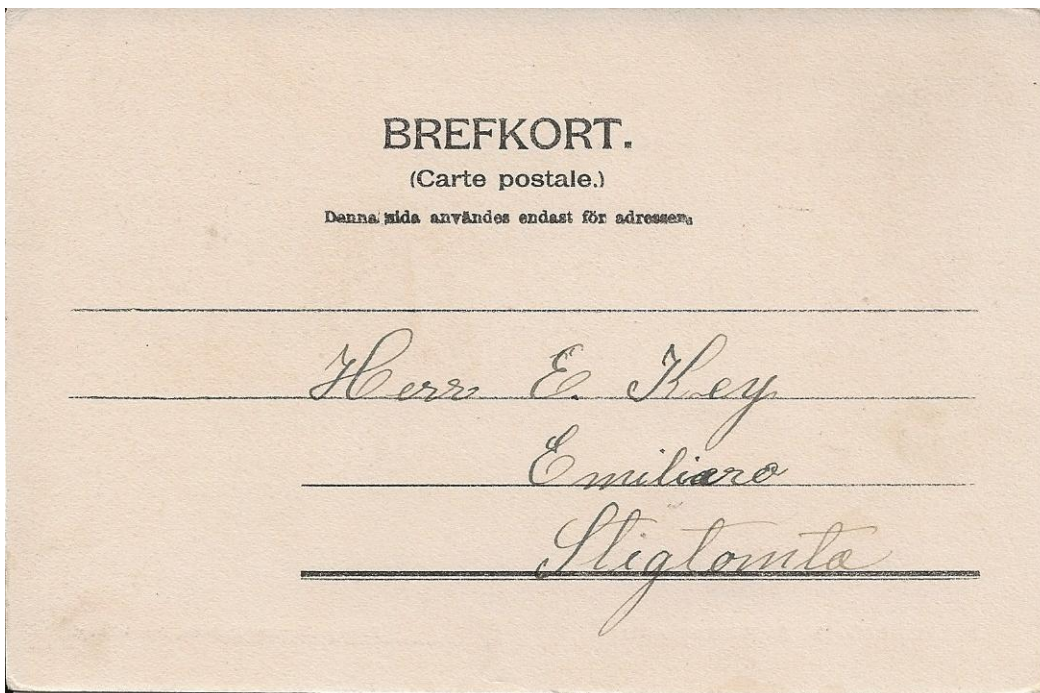 BREFKORT.
(Carte postale.)
Denna sida användes endast för adressen.
Herr E. Key
Emiliaro
Stigtomta